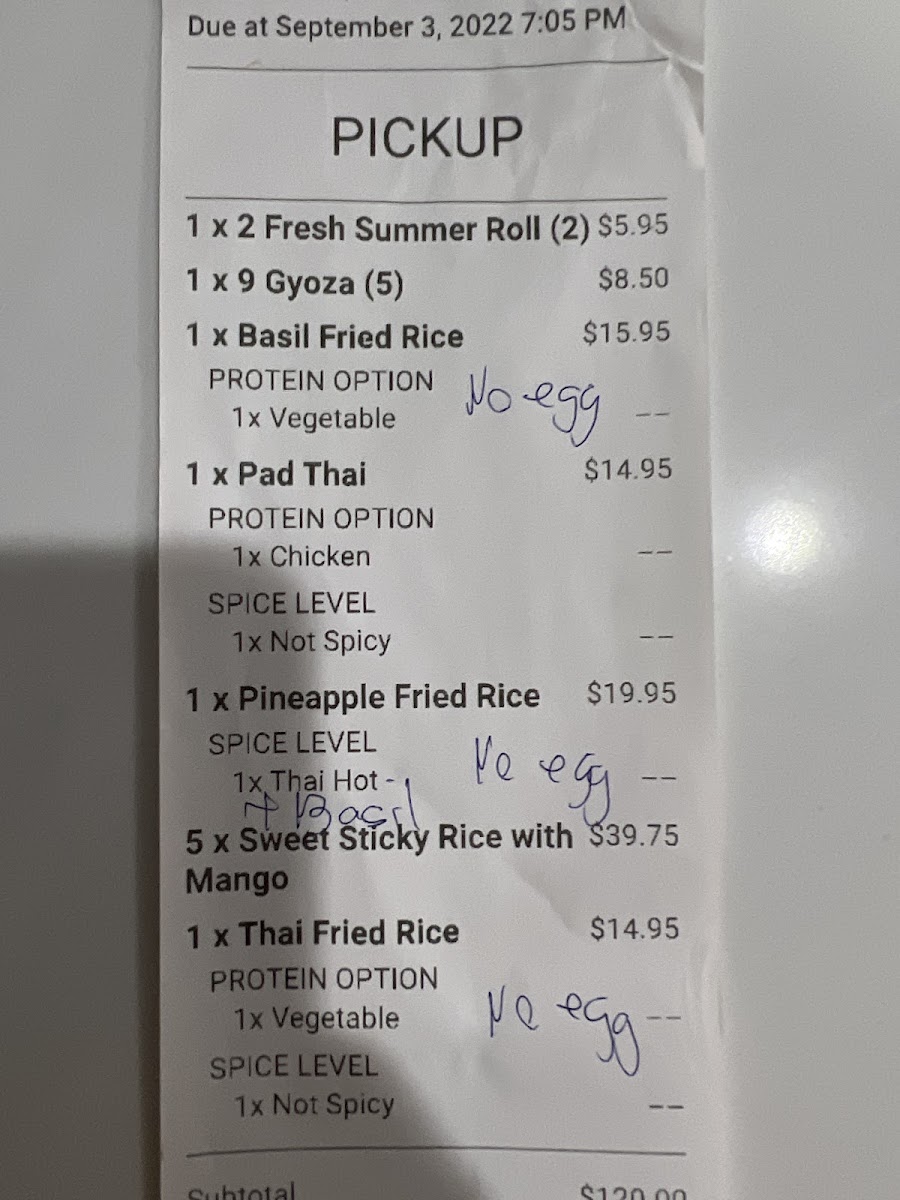 Due at September 3, 2022 7:05 PM
PICKUP
1 x 2 Fresh Summer Roll (2) $5.95
1 x 9 Gyoza (5) $8.50
1 x Basil Fried Rice $15.95
PROTEIN OPTION No egg
1x Vegetable --
1 x Pad Thai $14.95
PROTEIN OPTION
1x Chicken --
SPICE LEVEL
1x Not Spicy --
1 x Pineapple Fried Rice $19.95
SPICE LEVEL No egg
1x Thai Hot - --
+ Basil
5 x Sweet Sticky Rice with $39.75
Mango
1 x Thai Fried Rice $14.95
PROTEIN OPTION
1x Vegetable No egg --
SPICE LEVEL
1x Not Spicy --
Subtotal $120.00